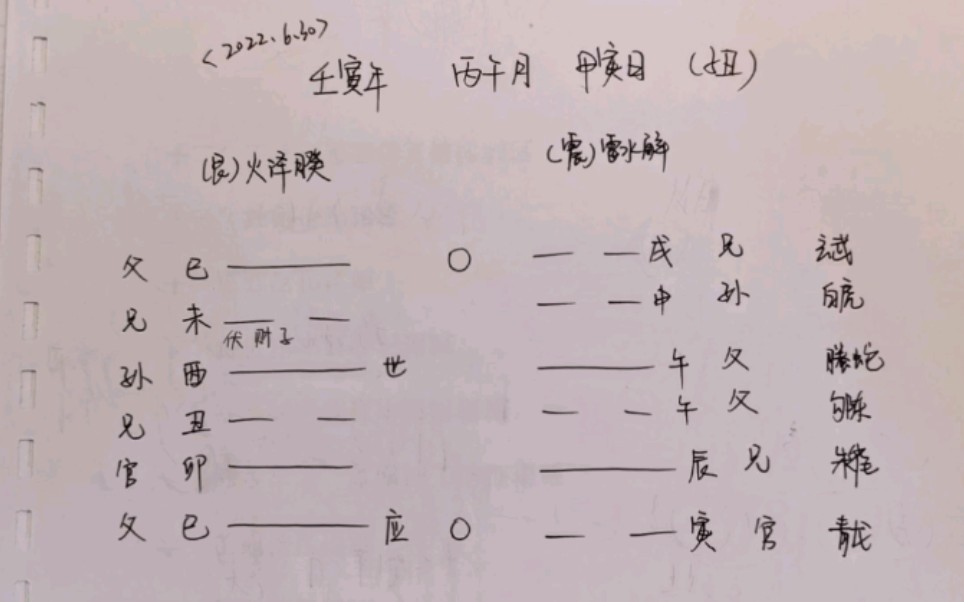 <2022.6.30>
壬寅年 丙午月 甲寅日 (丑)
(艮)火泽睽 (震)雷水解
父 巳 ○ 戌 兄 玄武
兄 未 申 孙 白虎
伏财子
孙 酉 世 午 父 螣蛇
兄 丑 午 父 勾陈
官 卯 辰 兄 朱雀
父 巳 应 ○ 寅 官 青龙